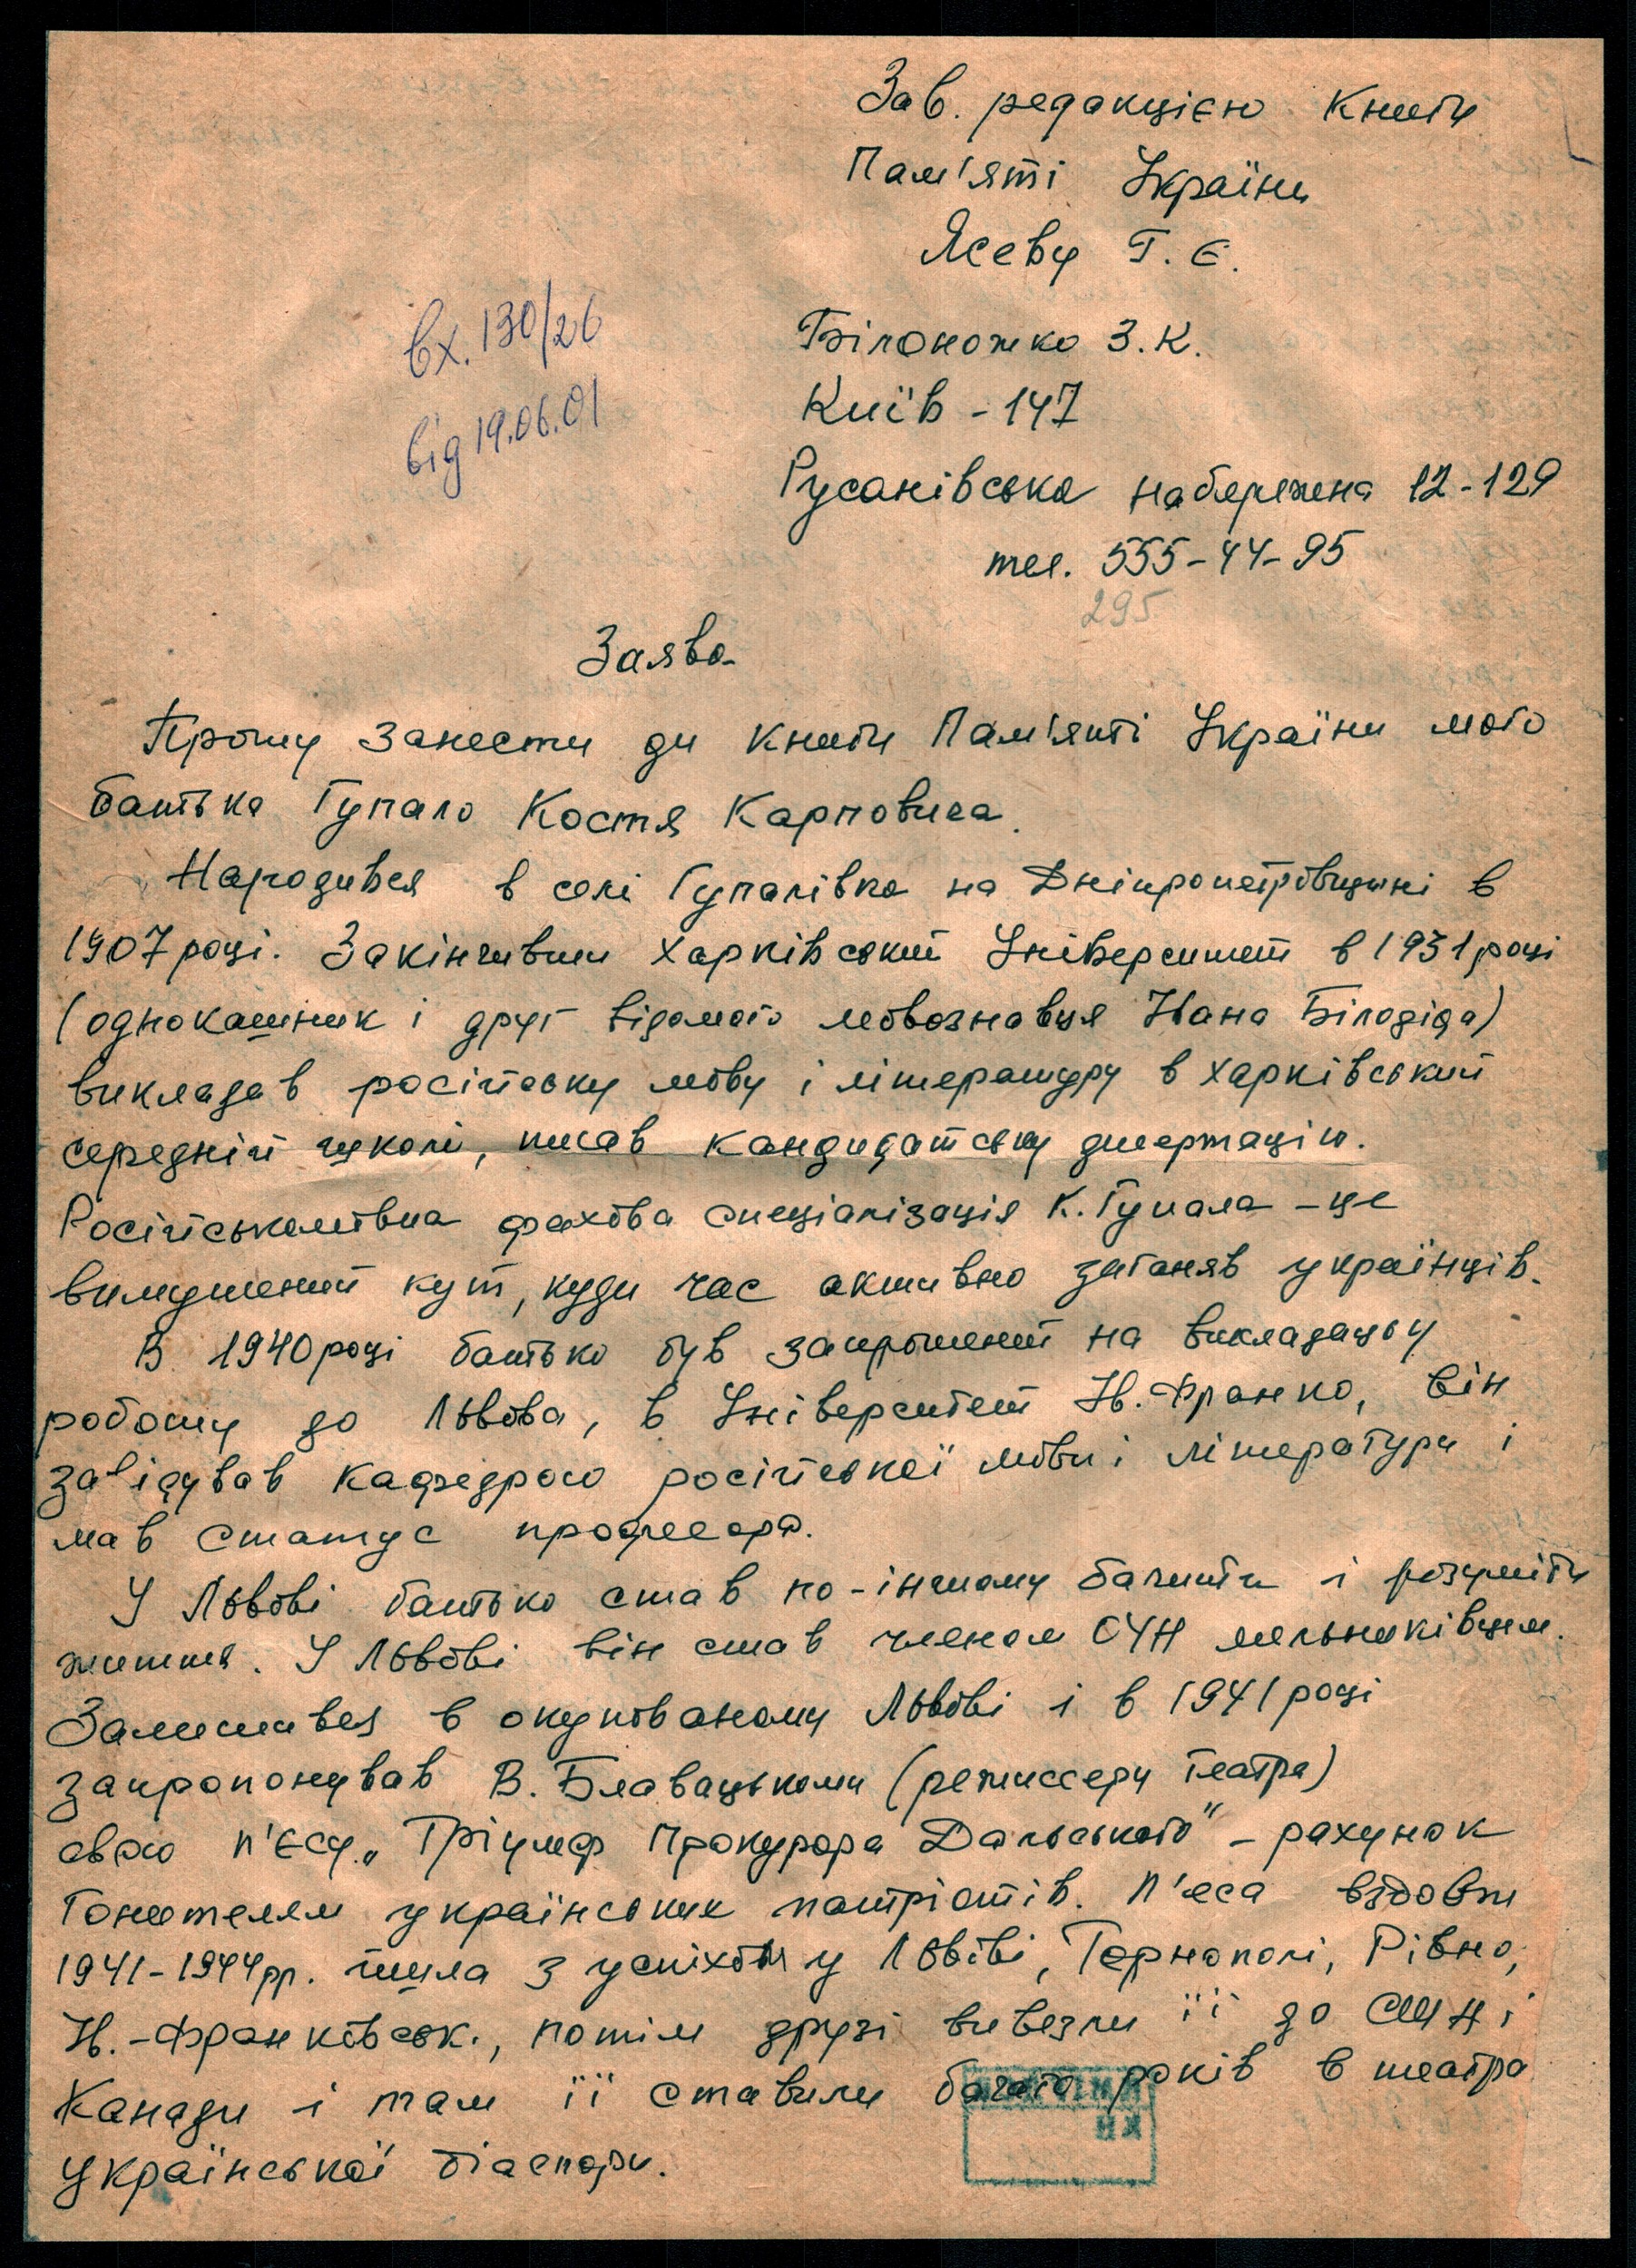 Зав. редакцією Книги
Пам'яті України
Ясеву Г. Є.
вх. 130/26
від 19.06.01
Білоножко З. К.
Київ - 147
Русанівська набережна 12-129
тел. 555-44-95
295
Заява
Прошу занести до Книги Пам'яті України мого
батька Гупало Костя Карповича.
Народився в селі Гупалівка на Дніпропетровщині в
1907 році. Закінчивши Харківський Університет в 1931 році
(однокашник і друг відомого мовознавця Івана Білодіда)
викладав російську мову і літературу в харківський
середній школі, писав кандидатську дисертацію.
Російськомовна фахова спеціалізація К. Гупала - це
вимушений кут, куди час активно заганяв українців.
В 1940 році батько був запрошений на викладацьку
роботу до Львова, в Університет Ів. Франко, він
завідував кафедрою російської мови і літератури і
мав статус професора.
У Львові батько став по-іншому бачити і розуміти
життя. У Львові він став членом ОУН мельниківцем.
Залишився в окупованому Львові і в 1941 році
запропонував В. Блавацькому (режиссеру театра)
свою п'єсу „Тріумф прокурора Дальського" - рахунок
гонителям українських патріотів. П'єса вздовж
1941-1944 рр. йшла з успіхом у Львові, Тернополі, Рівно,
Ів.-Франківськ., потім друзі вивезли її до США і
Канади і там її ставили багато років в театра
української діаспори.